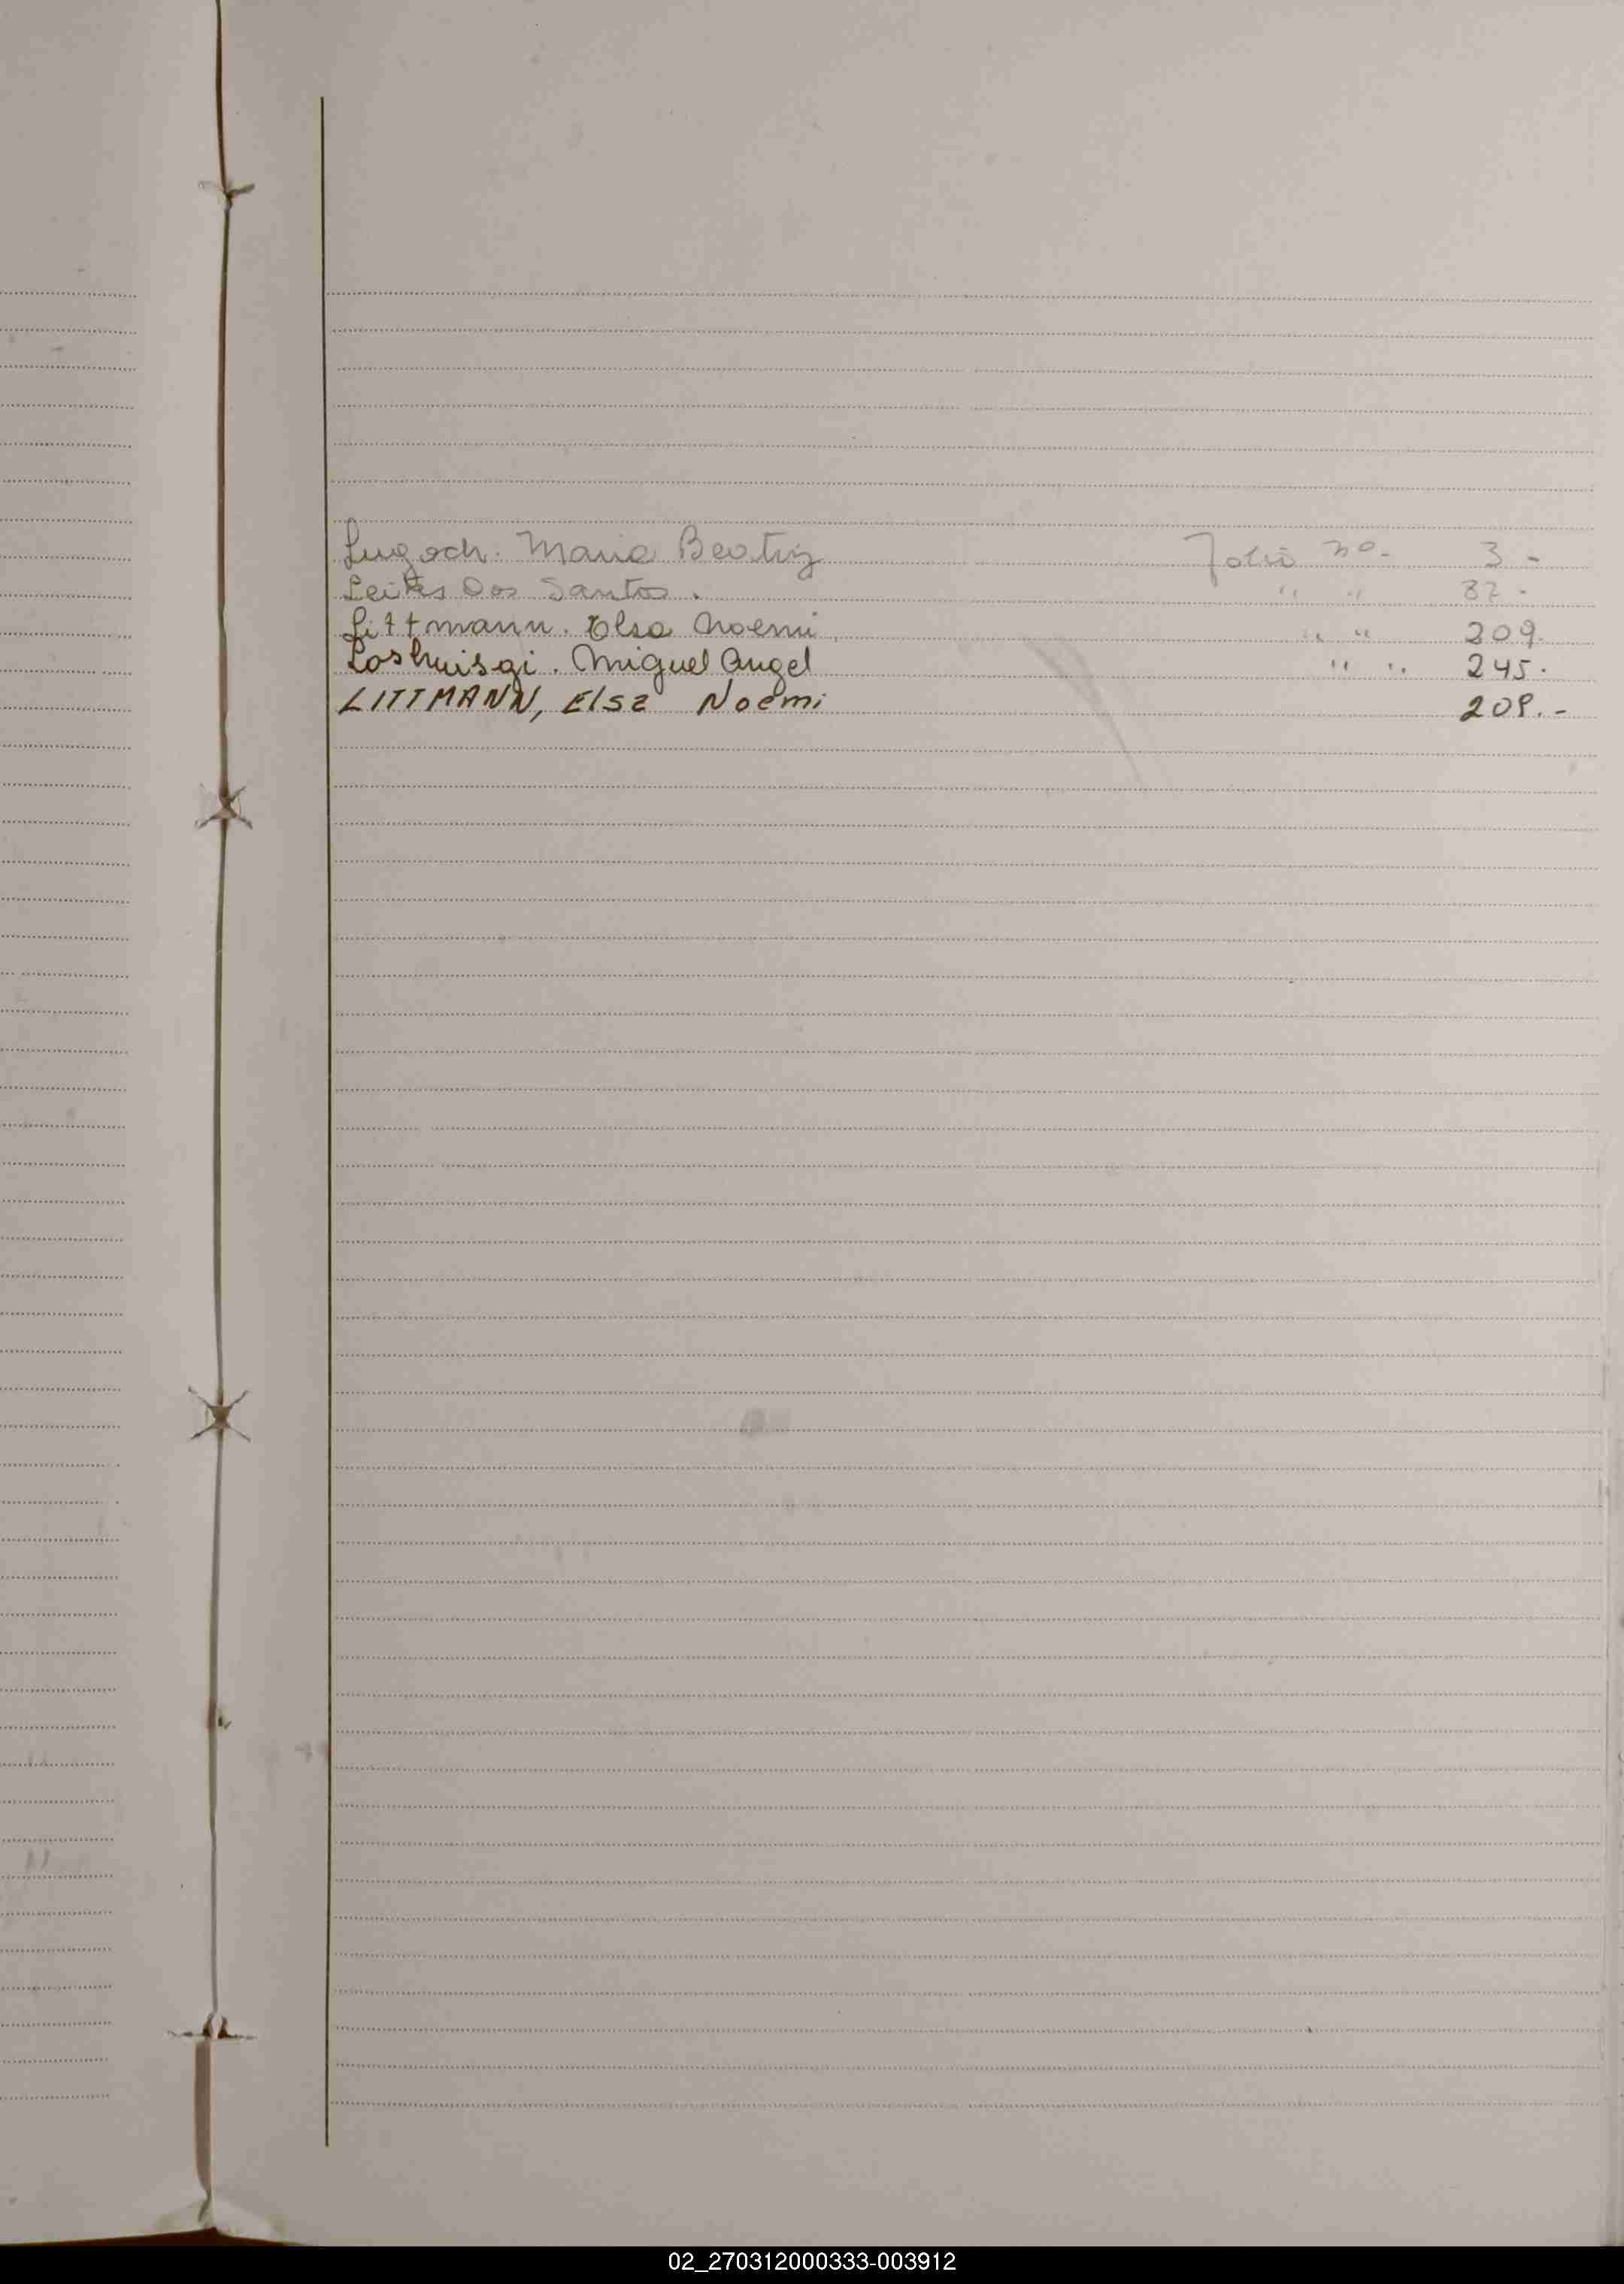 Lugoch. Maria Beatriz Folio nº. 3 -
Leites Dos Santos. " " 37 -
Littmann. Elsa Noemi. " " 209.
Miguel Angel " " 245.
LITTMANN, Elsa Noemi 209.-
02_270312000333-003912